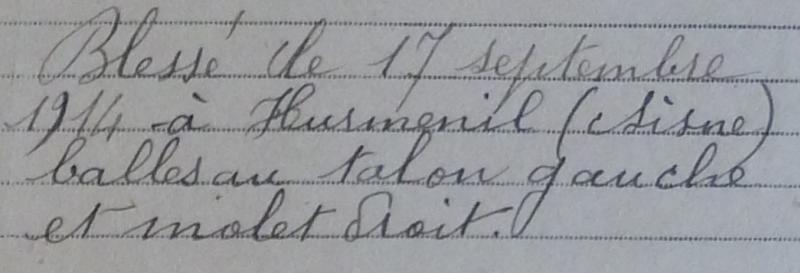 Blessé le 17 septembre
1914 à Hurmenil (Aisne)
balles au talon gauche
et molet droit.